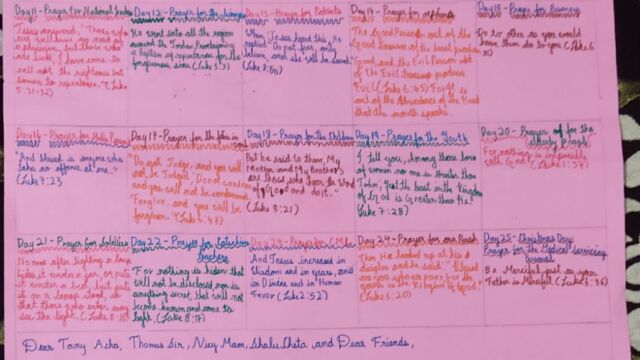 Day 11 - Prayer for National leaders
Jesus answered, "Those who
are well have no need of
a physician, but those who
are sick; I have come to
call not the righteous but
sinners to repentance." (Luke
5:31-32)
Day 12 - Prayer for the
He went into all the region
around the Jordan, Proclaiming
a Baptism of repentance for the
forgiveness sins (Luke 3:3)
Day 13 - Prayer for Patients
When Jesus heard this, He
replied "Do not fear, only
believe, and she will be saved."
(Luke 8:50)
Day 14 - Prayer for orphans
The Good Person out of the
Good treasure of the heart produces
Good, and the Evil Person out
of the Evil treasure produces
Evil (Luke 6:45) For it is
out of the Abundance of the Heart
that the mouth speaks.
Day 15 - Prayer for
Do to other as you would
have them do to you (Luke 6:
31)
Day 16 - Prayer for
"And blessed is anyone who
takes no offence at me."
(Luke 7:23
Day 17 - Prayer for the
Do not Judge, and you will
not be Judged; Do not condemn
and you will not be condemned.
Forgive, and you will be
forgiven." (Luke 6:47)
Day 18 - Prayer for the Children
But he said to them, My
Mother and My Brothers
are those who hear the Word
of God and do it."
(Luke 8:21)
Day 19 - Prayer for the Youth
I tell you, Among those born
of women no one is Greater than
John, Yet the least in the Kingdom
of God is Greater than He."
Luke 7:28)
Day 20 - Prayer of for the
(elderly People)
For nothing is impossible
with God (Luke 1:37)
Day 21 - Prayer for Soldiers
No one after lighting a lamp
hides it under a jar, or puts
it under a bed, but puts
it on a lamp stand, so
that those who enter may
see the light. (Luke 8:16)
Day 22 - Prayer for
Teachers
"For nothing is hidden that
will not be disclosed, nor is
anything secret, that will not
become known and come to
light. (Luke 8:17)
Day 23 - Prayer for
And Jesus increased in
Wisdom and in years, and
in Divine and in Human
Favor (Luke 2:52)
Day 24 - Prayer for our Parish
Then He looked up at his
disciples and he said "Blessed
are you who are poor, for
yours is the Kingdom of God"
(Luke 6:20)
Day 25 - Christmas Day
Prayer for the Medical
Be Merciful, just as your
Father is Merciful (Luke 6:36)
Dear Tony Acha, Thomas Sir, Nicy Mam, Shalu Cheta and Dear Friends,